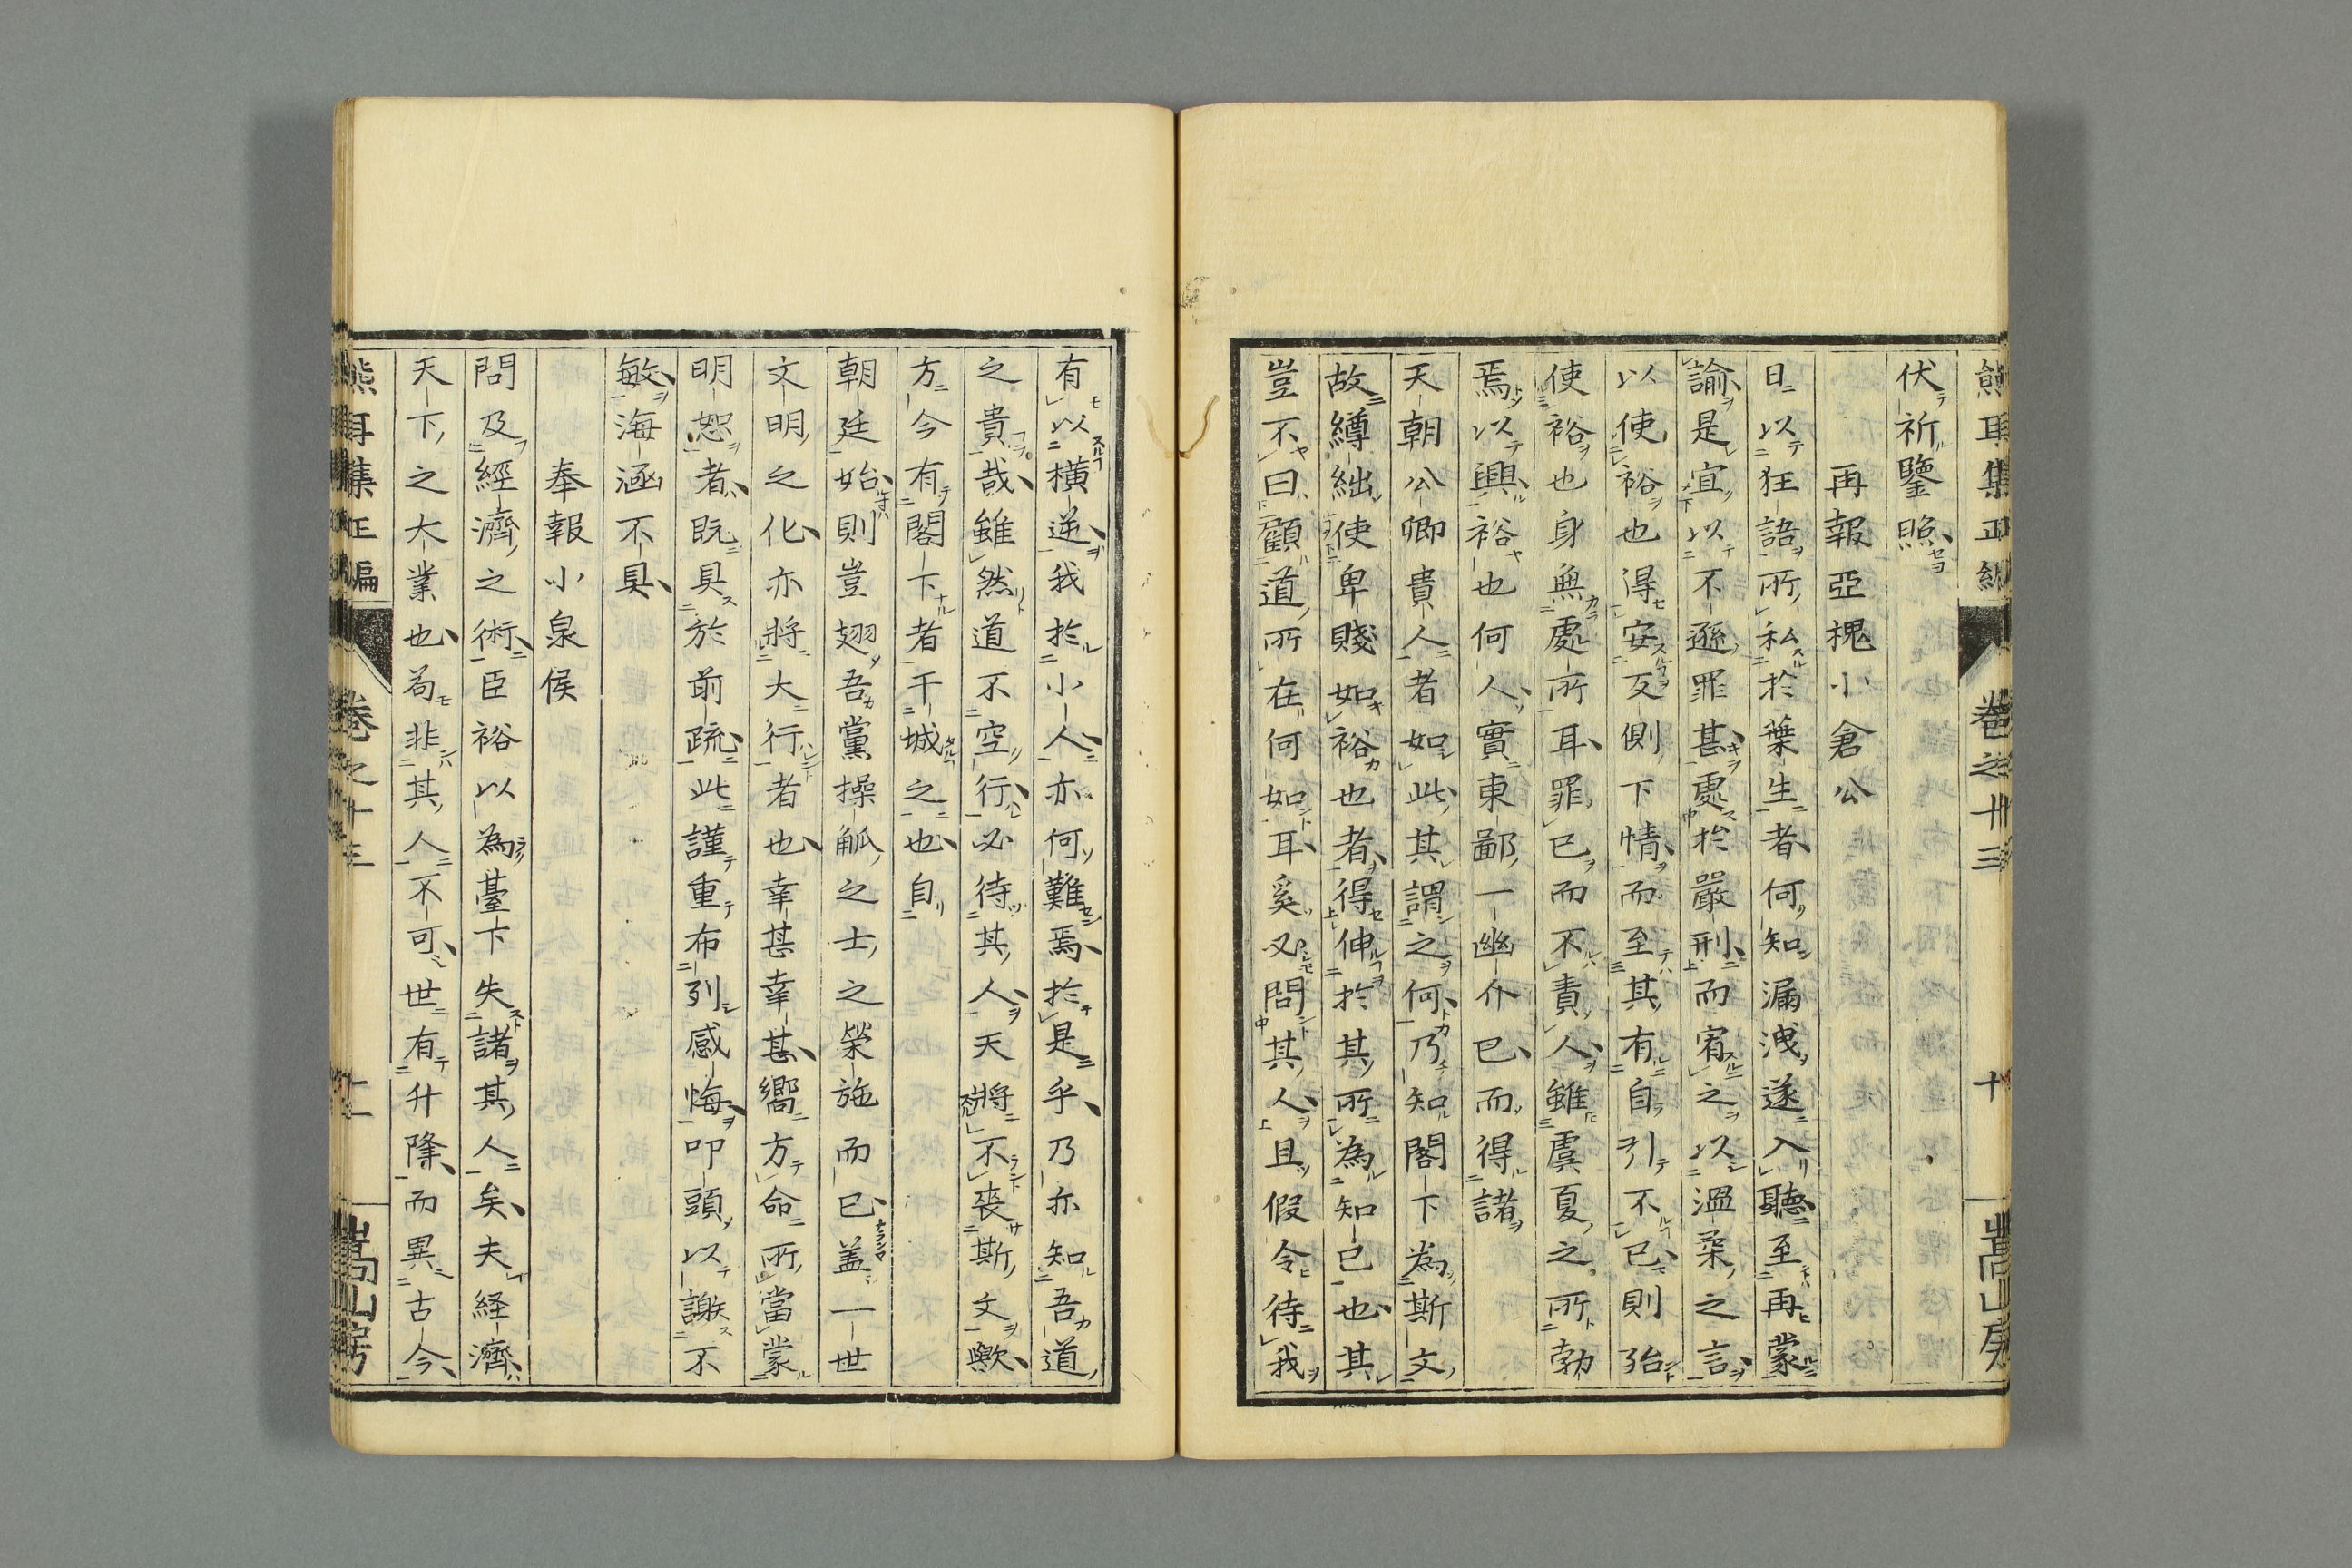 伏祈鑒照
再報亞槐小倉公
日以狂語所私於葉生者何知漏洩遂入聽至再蒙
諭是宜以不遜罪甚處於嚴刑而宥之以溫柔之言
以使裕也得安反側下情而至其有自引不已則殆
使裕也身無處所耳罪已而不責人雖虞夏之所勃
焉以興裕也何人實東鄙一幽介已而得諸
天朝公卿貴人者如此其謂之何乃知閣下為斯文
故縛絀使卑賤如裕也者得伸於其所為知己也其
豈不曰顧道所在何如耳奚又問其人且假令待我
有以橫逆我於小人亦何難焉於是乎乃亦知吾道
之貴哉雖然道不空行必待其人天將不喪斯文歟
方今有閣下者干城之也自
朝廷始則豈翅吾黨操觚之士之榮施而已盖一世
文明之化亦將大行者也幸甚幸甚嚮方命所當蒙
明恕者既具於前疏此謹重布列感悔叩頭以謝不
敏海涵不具
奉報小泉侯
問及經濟之術臣裕以為薹下失諸其人矣夫経濟
天下之大業也苟非其人不可世有升降而異古今
熊耳集正編
卷之廿三
十
嵩山房